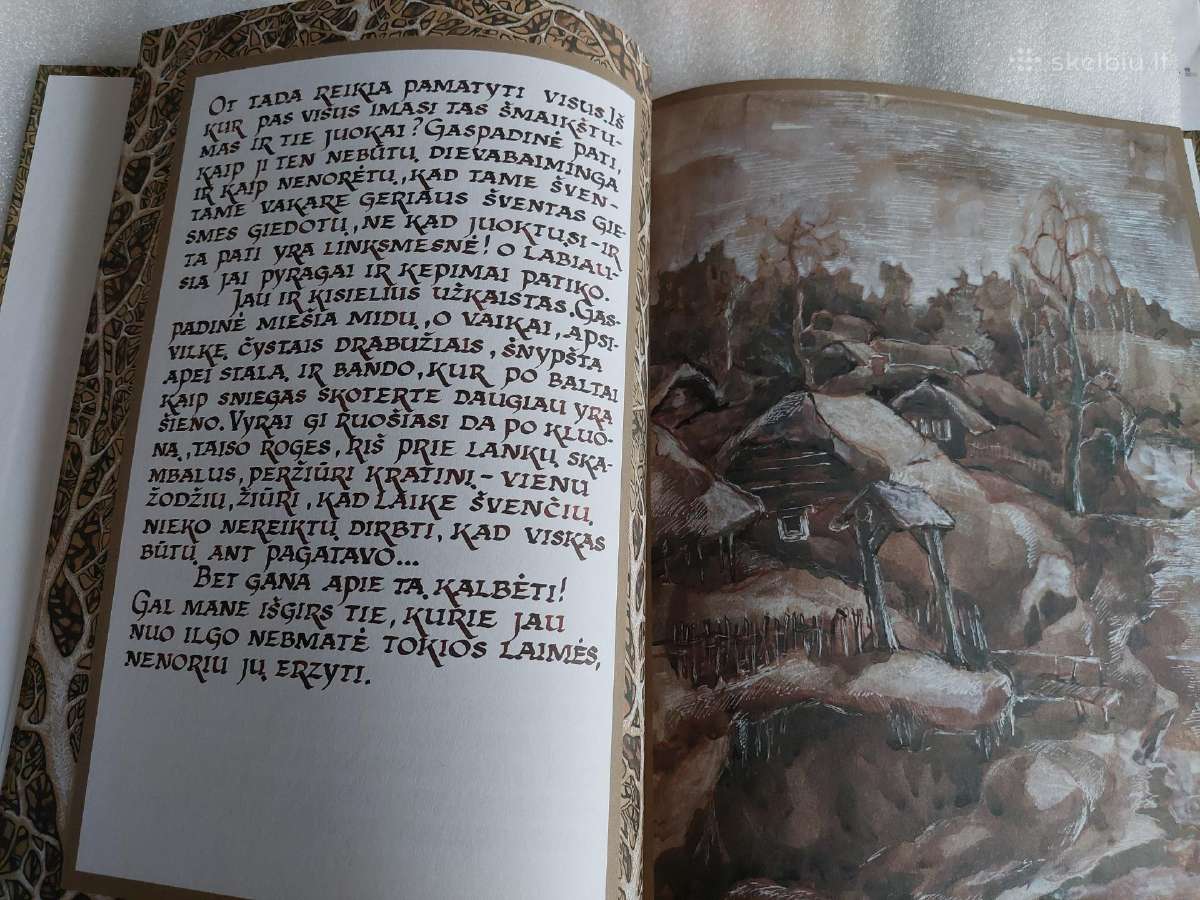 OT TADA REIKIA PAMATYTI VISUS. IŠ
KUR PAS VISUS IMASI TAS ŠMAIKŠTU-
MAS IR TIE JUOKAI? GASPADINĖ PATI,
KAIP JI TEN NEBŪTŲ DIEVABAIMINGA
IR KAIP NENORĖTŲ, KAD TAME ŠVEN-
TAME VAKARE GERIAUS ŠVENTAS GIE-
SMES GIEDOTŲ, NE KAD JUOKTŲSI - IR
TA PATI YRA LINKSMESNĖ! O LABIAU-
SIA JAI PYRAGAI IR KEPIMAI PATIKO.
JAU IR KISIELIUS UŽKAISTAS. GAS-
PADINĖ MIEŠIA MIDŲ, O VAIKAI, APSI-
VILKĘ ČYSTAIS DRABUŽIAIS, ŠNYPŠTA
APEI STALĄ IR BANDO, KUR PO BALTAI
KAIP SNIEGAS SKOTERTE DAUGIAU YRA
ŠIENO. VYRAI GI RUOŠIASI DA PO KLUO-
NĄ, TAISO ROGES, RIŠ PRIE LANKŲ SKA-
MBALUS, PERŽIŪRI KRATINĮ - VIENU
ŽODŽIU, ŽIŪRI, KAD LAIKE ŠVENČIŲ
NIEKO NEREIKTŲ DIRBTI, KAD VISKAS
BŪTŲ ANT PAGATAVO...
BET GANA APIE TĄ KALBĖTI!
GAL MANE IŠGIRS TIE, KURIE JAU
NUO ILGO NEBMATĖ TOKIOS LAIMĖS,
NENORIU JŲ ERZYTI.
skelbiu.lt